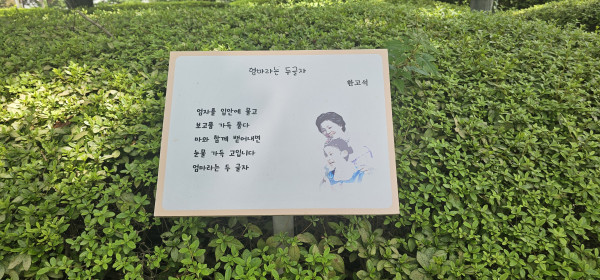 엄마라는 두글자
한고석
엄자를 입안에 물고
보고픔 가득 물다
마와 함께 뱉어내면
눈물 가득 고입니다
엄마라는 두 글자